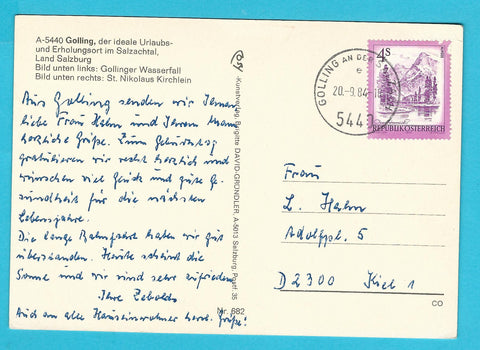 A-5440 Golling, der ideale Urlaubs-
und Erholungsort im Salzachtal,
Land Salzburg
Bild unten links: Gollinger Wasserfall
Bild unten rechts: St. Nikolaus Kirchlein
Aus Golling senden wir Ihnen,
liebe Frau Hahn und Ihrem Mann
herzliche Grüße. Zum Geburtstag
gratulieren wir recht herzlich und
wünschen viel Glück und gute Ge-
sundheit für die nächsten
Lebensjahre.
Die lange Bahnfahrt haben wir gut
überstanden. Heute scheint die
Sonne und wir sind sehr zufrieden.
Ihre
Auch an alle Hauseinwohner herzl. Grüße!
Brigitte DAVID-GRÜNDLER, A-5013 Salzburg, Postf. 35
Nr. 682
GOLLING AN DER
e
20.-9.84-
5440
4S
REPUBLIK ÖSTERREICH
Frau
L. Hahn
Adolfpl. 5
D 2300 Kiel 1
CO